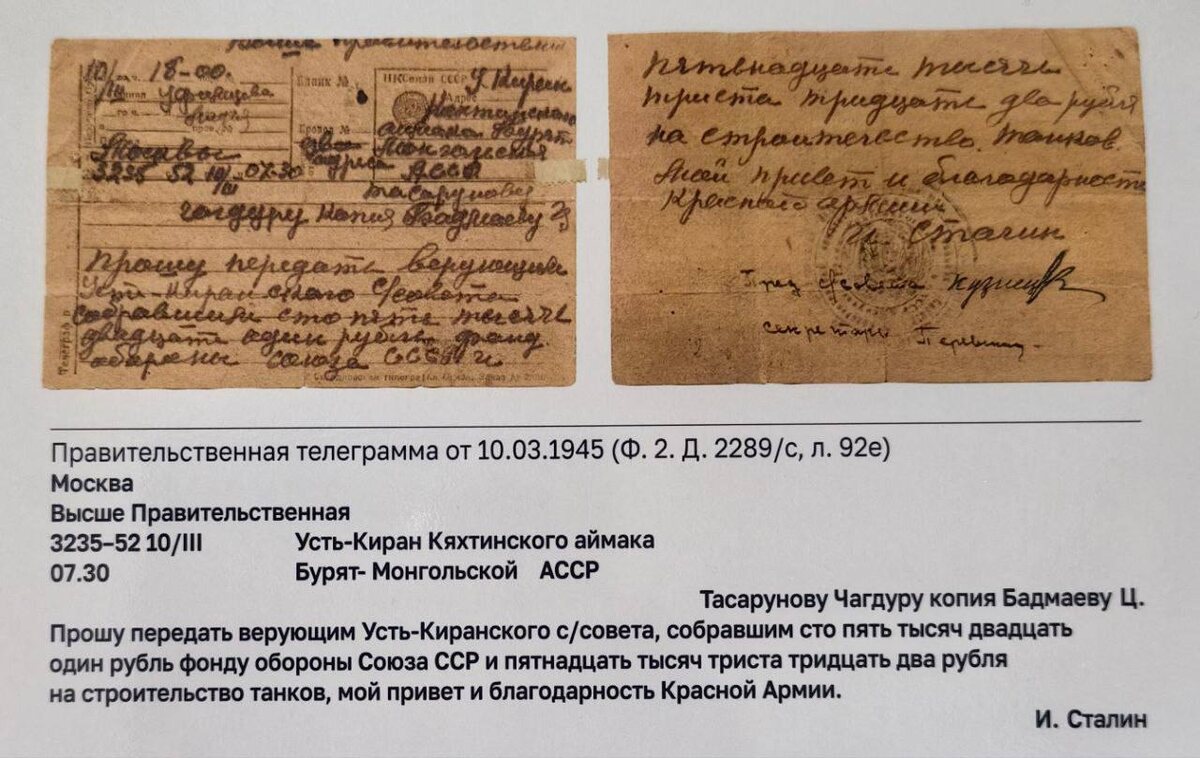 Высше Правительствен
10/III 18-00.
Бланк №
НКСвязи СССР
Адрес
У Киран
Кяхтинского
аймака Бурят
Монгольская
АССР
Москвы
3235 52 10/III 07-30
Тасарунову
Чагдуру копия Бадмаеву Ц
Прошу передать верующим
Усть-Киранского с/совета
собравшим сто пять тысяч
двадцать один рубль фонд.
обороны союза СССР и
пятнадцать тысяч
триста тридцать два рубля
на строительство танков.
Мой привет и благодарность
Красной армии
И Сталин
Пред с/совета
секретарь
Правительственная телеграмма от 10.03.1945 (Ф. 2. Д. 2289/с, л. 92е)
Москва
Высше Правительственная
3235–52 10/III Усть-Киран Кяхтинского аймака
07.30 Бурят- Монгольской АССР
Тасарунову Чагдуру копия Бадмаеву Ц.
Прошу передать верующим Усть-Киранского с/совета, собравшим сто пять тысяч двадцать
один рубль фонду обороны Союза ССР и пятнадцать тысяч триста тридцать два рубля
на строительство танков, мой привет и благодарность Красной Армии.
И. Сталин